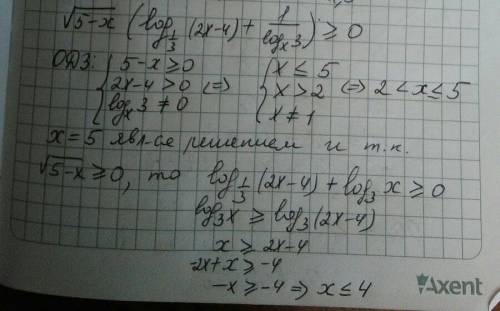 √5-x (log_{1/3} (2x-4) + 1/log_x 3) ≥ 0
ОДЗ: { 5-x ≥ 0 { x ≤ 5
2x-4 > 0 <=> x > 2 <=> 2 < x ≤ 5
log_x 3 ≠ 0 x ≠ 1
x = 5 явл-ся решением и т.к.
√5-x ≥ 0, то log_{1/3} (2x-4) + log_3 x ≥ 0
log_3 x ≥ log_3 (2x-4)
x ≥ 2x-4
-2x+x ≥ -4
-x ≥ -4 => x ≤ 4
Axent